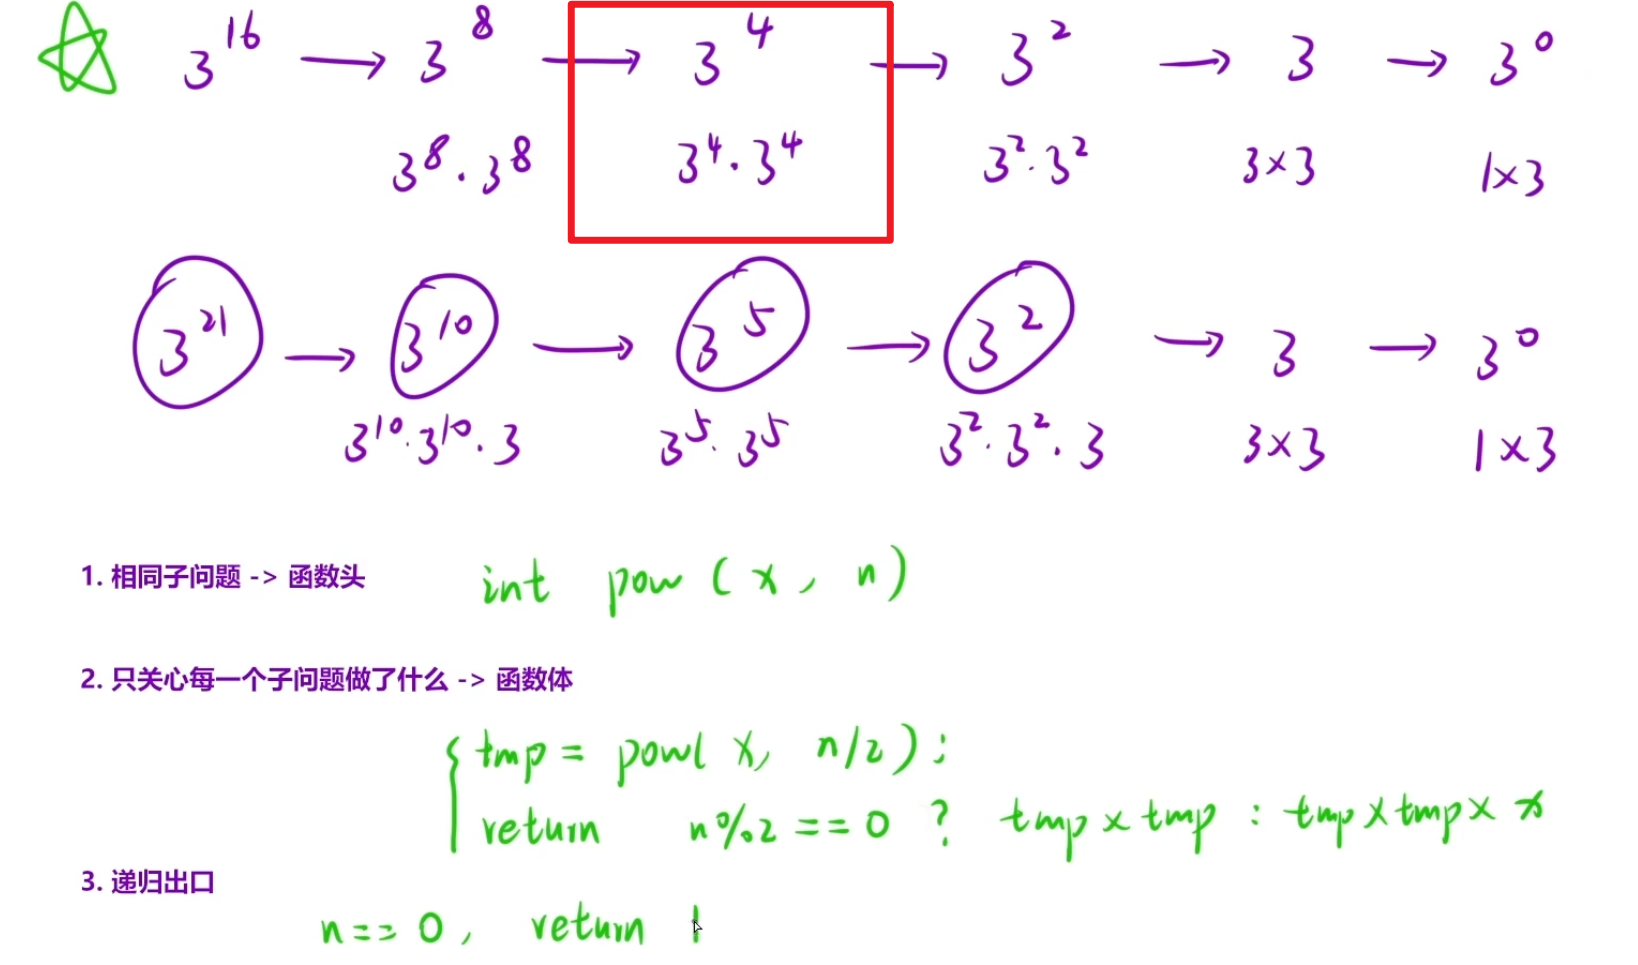 3^16 → 3^8 → 3^4 → 3^2 → 3 → 3^0
3^8 · 3^8 3^4 · 3^4 3^2 · 3^2 3×3 1×3
3^21 → 3^10 → 3^5 → 3^2 → 3 → 3^0
3^10 · 3^10 · 3 3^5 · 3^5 3^2 · 3^2 · 3 3×3 1×3
1. 相同子问题 -> 函数头 int pow (x, n)
2. 只关心每一个子问题做了什么 -> 函数体
tmp = pow( x, n/2);
return n%2 == 0 ? tmp × tmp : tmp × tmp × x
3. 递归出口
n == 0, return 1